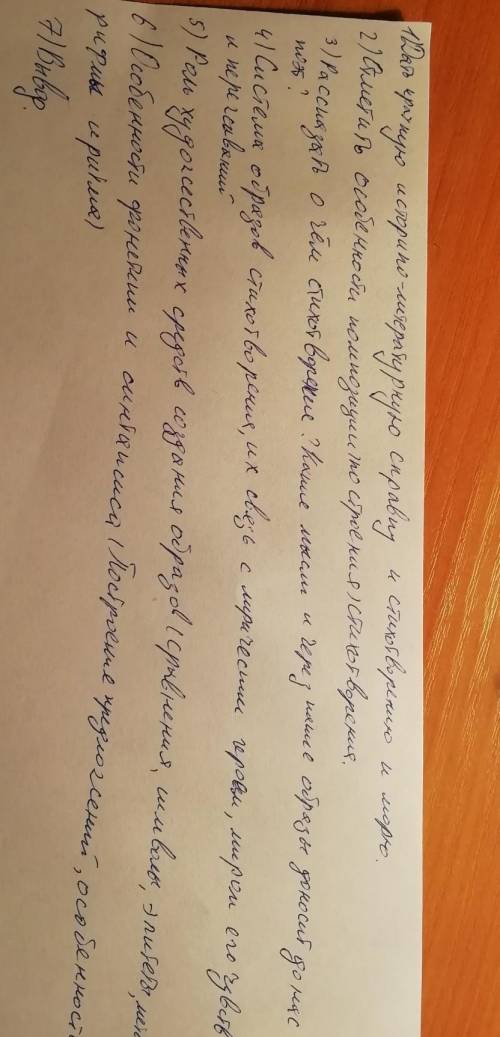 1) Дать краткую историко-литературную справку к стихотворению и морю.
2) Отметить особенности композиции (построения) стихотворения.
3) Рассказать о чём стихотворение? Какие мысли и через какие образы доносит до нас
поэт?
4) Система образов стихотворения, их связь с лирическим героем, миром его чувств
и переживаний
5) Роль художественных средств создания образов (сравнения, символы, эпитеты, мета
6) Особенности фонетики и синтаксиса (Построение предложений, особенност
рифмы и ритма)
7) Вывод.